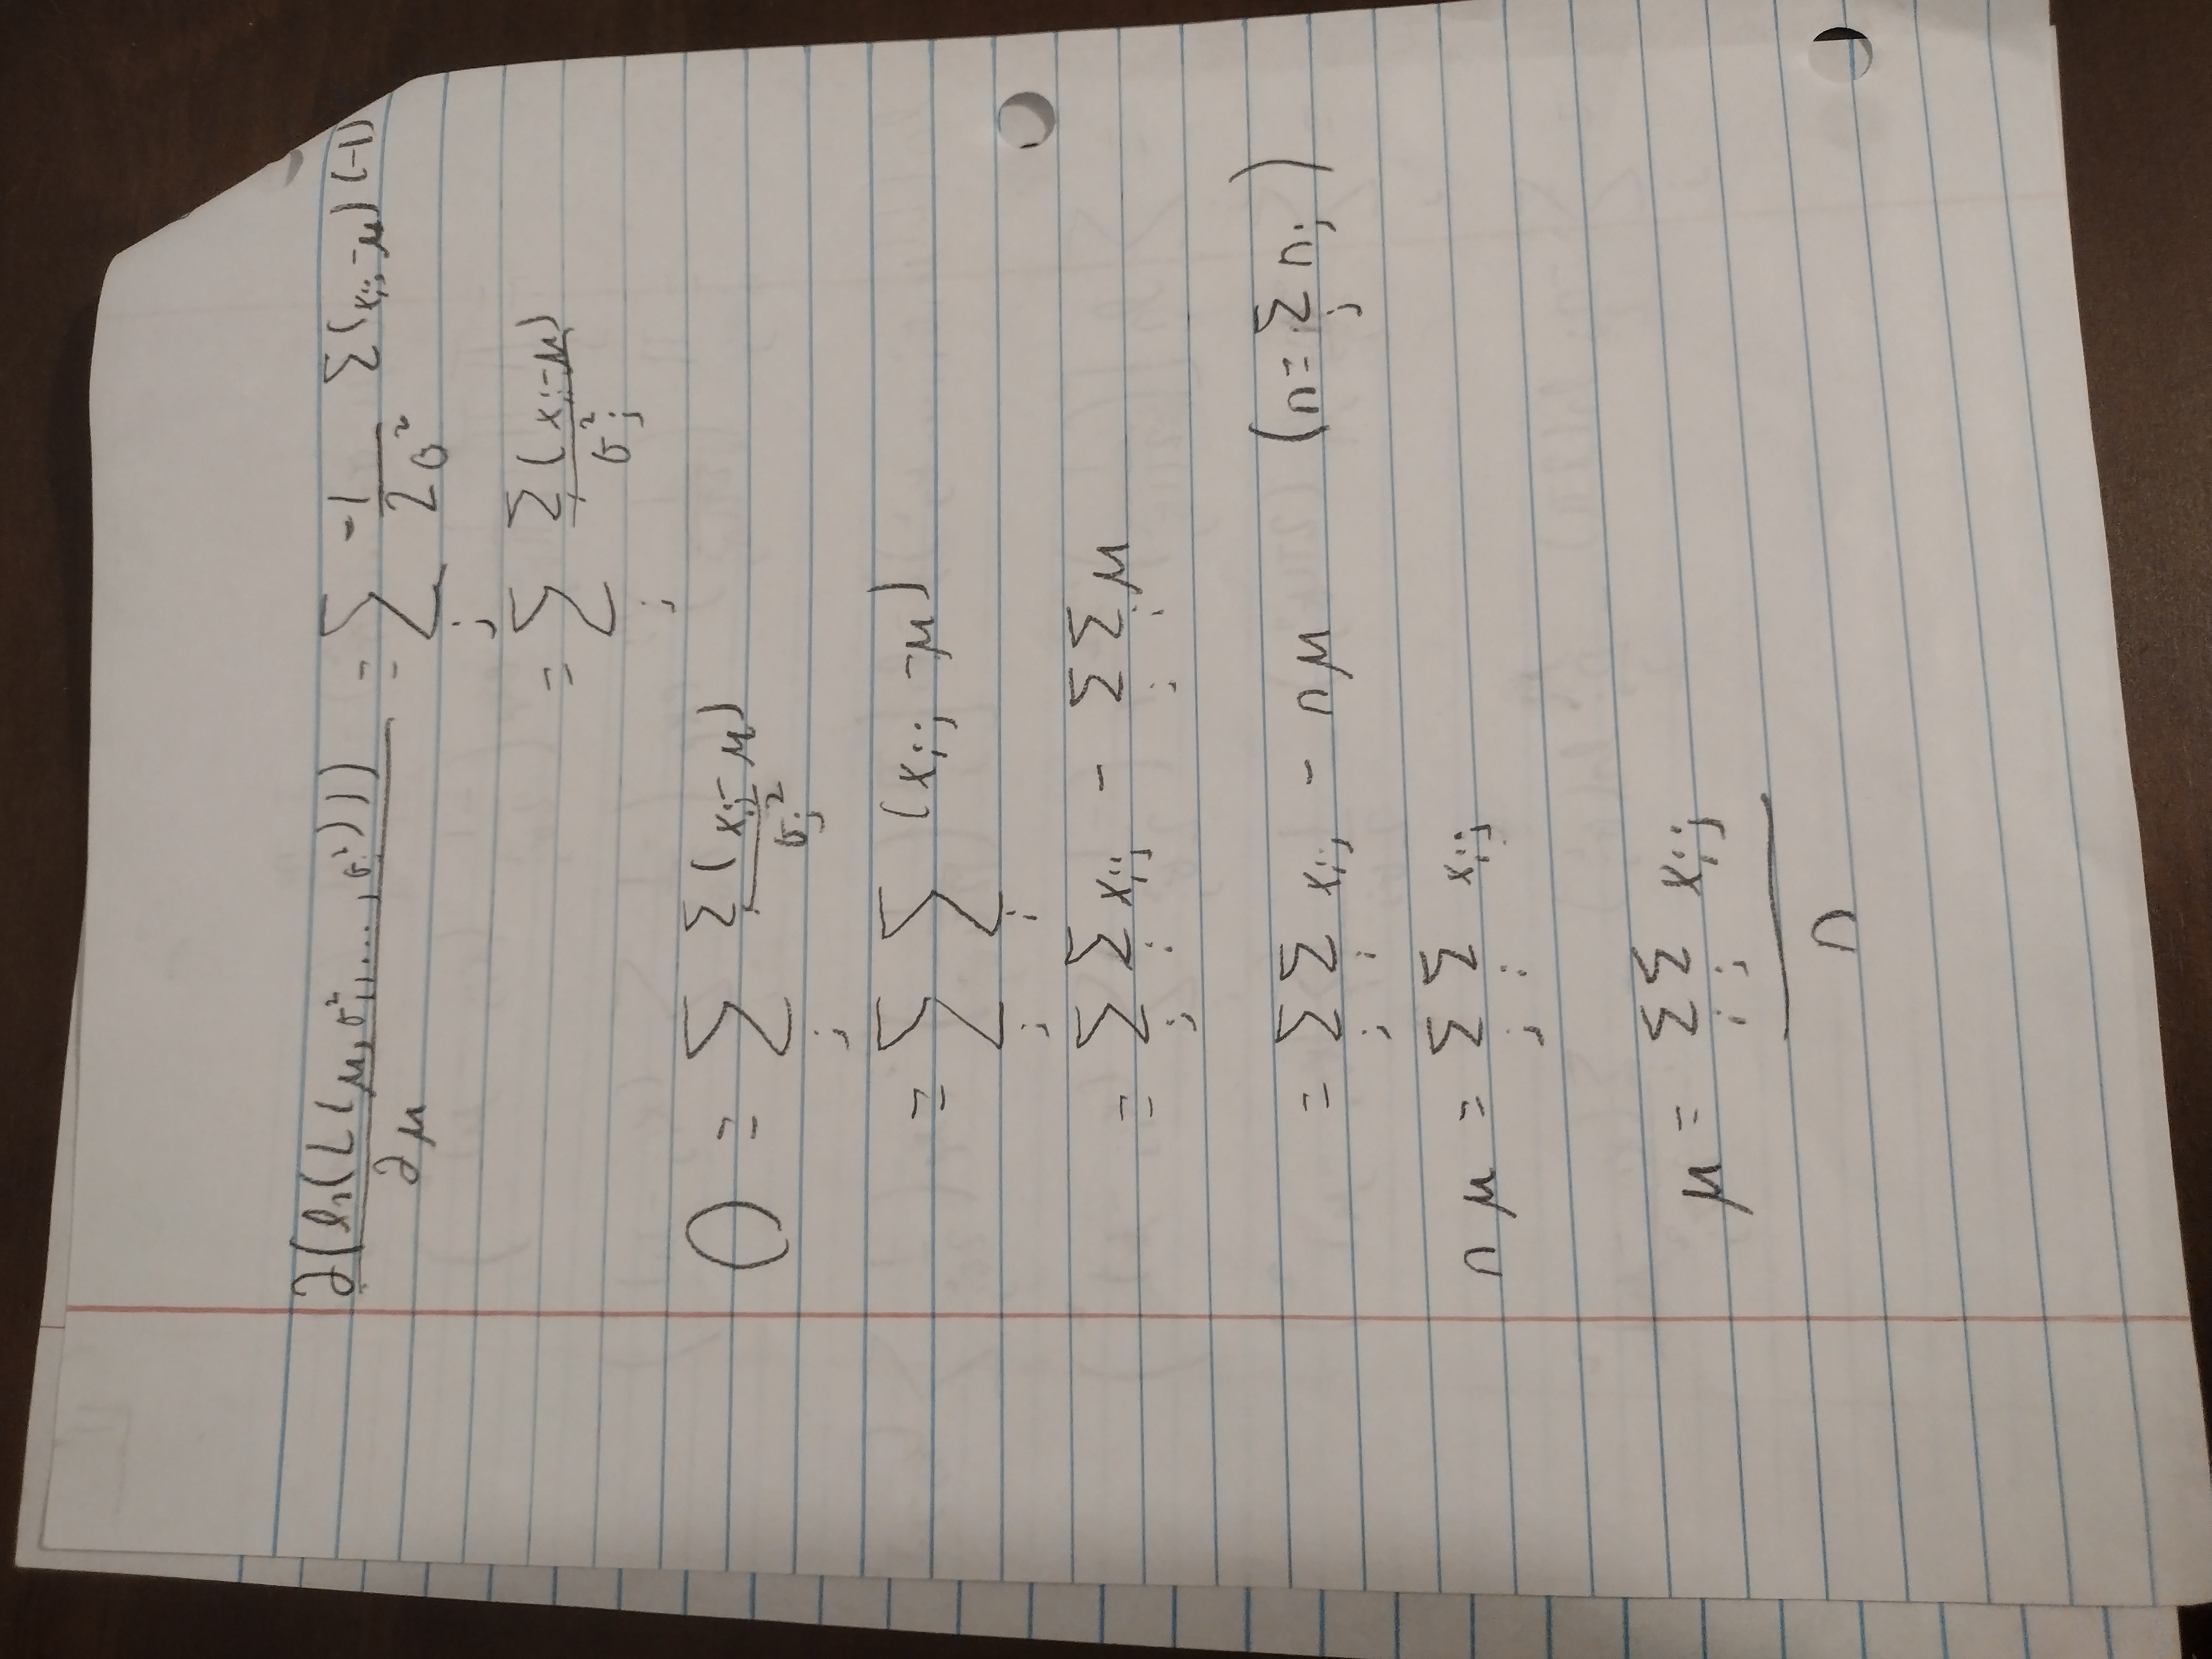 ∂(ln(L(μ, σ₁², ..., σⱼ²))) / ∂μ = Σⱼ -1/(2σ²) Σ(xᵢⱼ-μ)(-1)
= Σⱼ Σᵢ(xᵢⱼ-μ) / σⱼ²
0 = Σⱼ Σᵢ(xᵢⱼ-μ) / σⱼ²
= Σⱼ Σᵢ (xᵢⱼ-μ)
= Σⱼ Σᵢ xᵢⱼ - Σⱼ Σᵢ μ
= Σⱼ Σᵢ xᵢⱼ - nμ (n = Σⱼ nⱼ)
nμ = Σⱼ Σᵢ xᵢⱼ
μ = Σᵢ Σⱼ xᵢⱼ / n